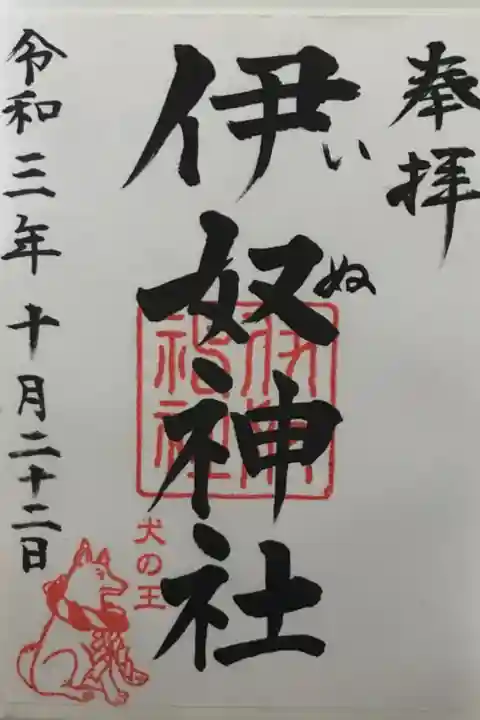 奉拝
伊奴神社
いぬ
犬の王
令和三年十月二十二日